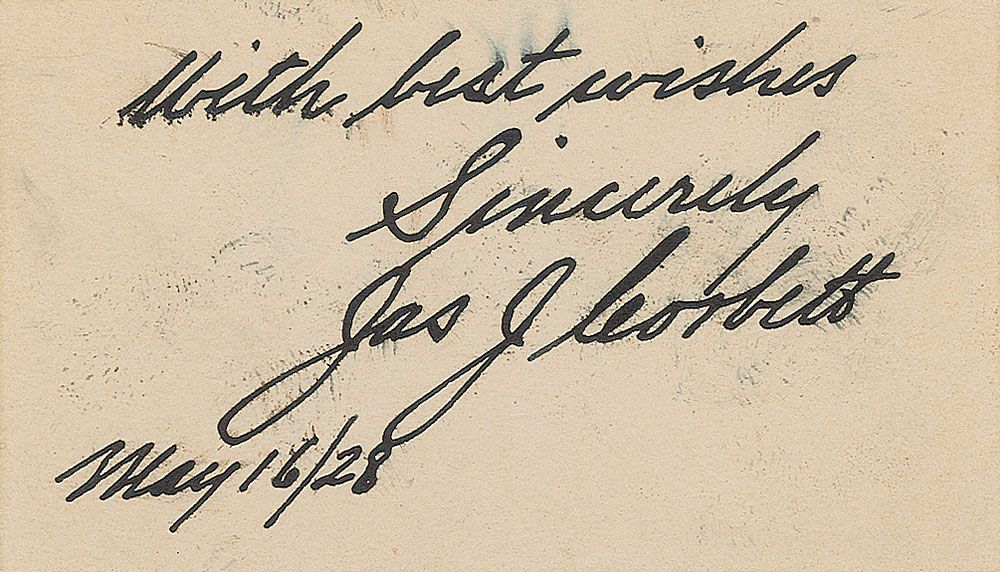 With best wishes
Sincerely
Jas J Corbett
May 16/28